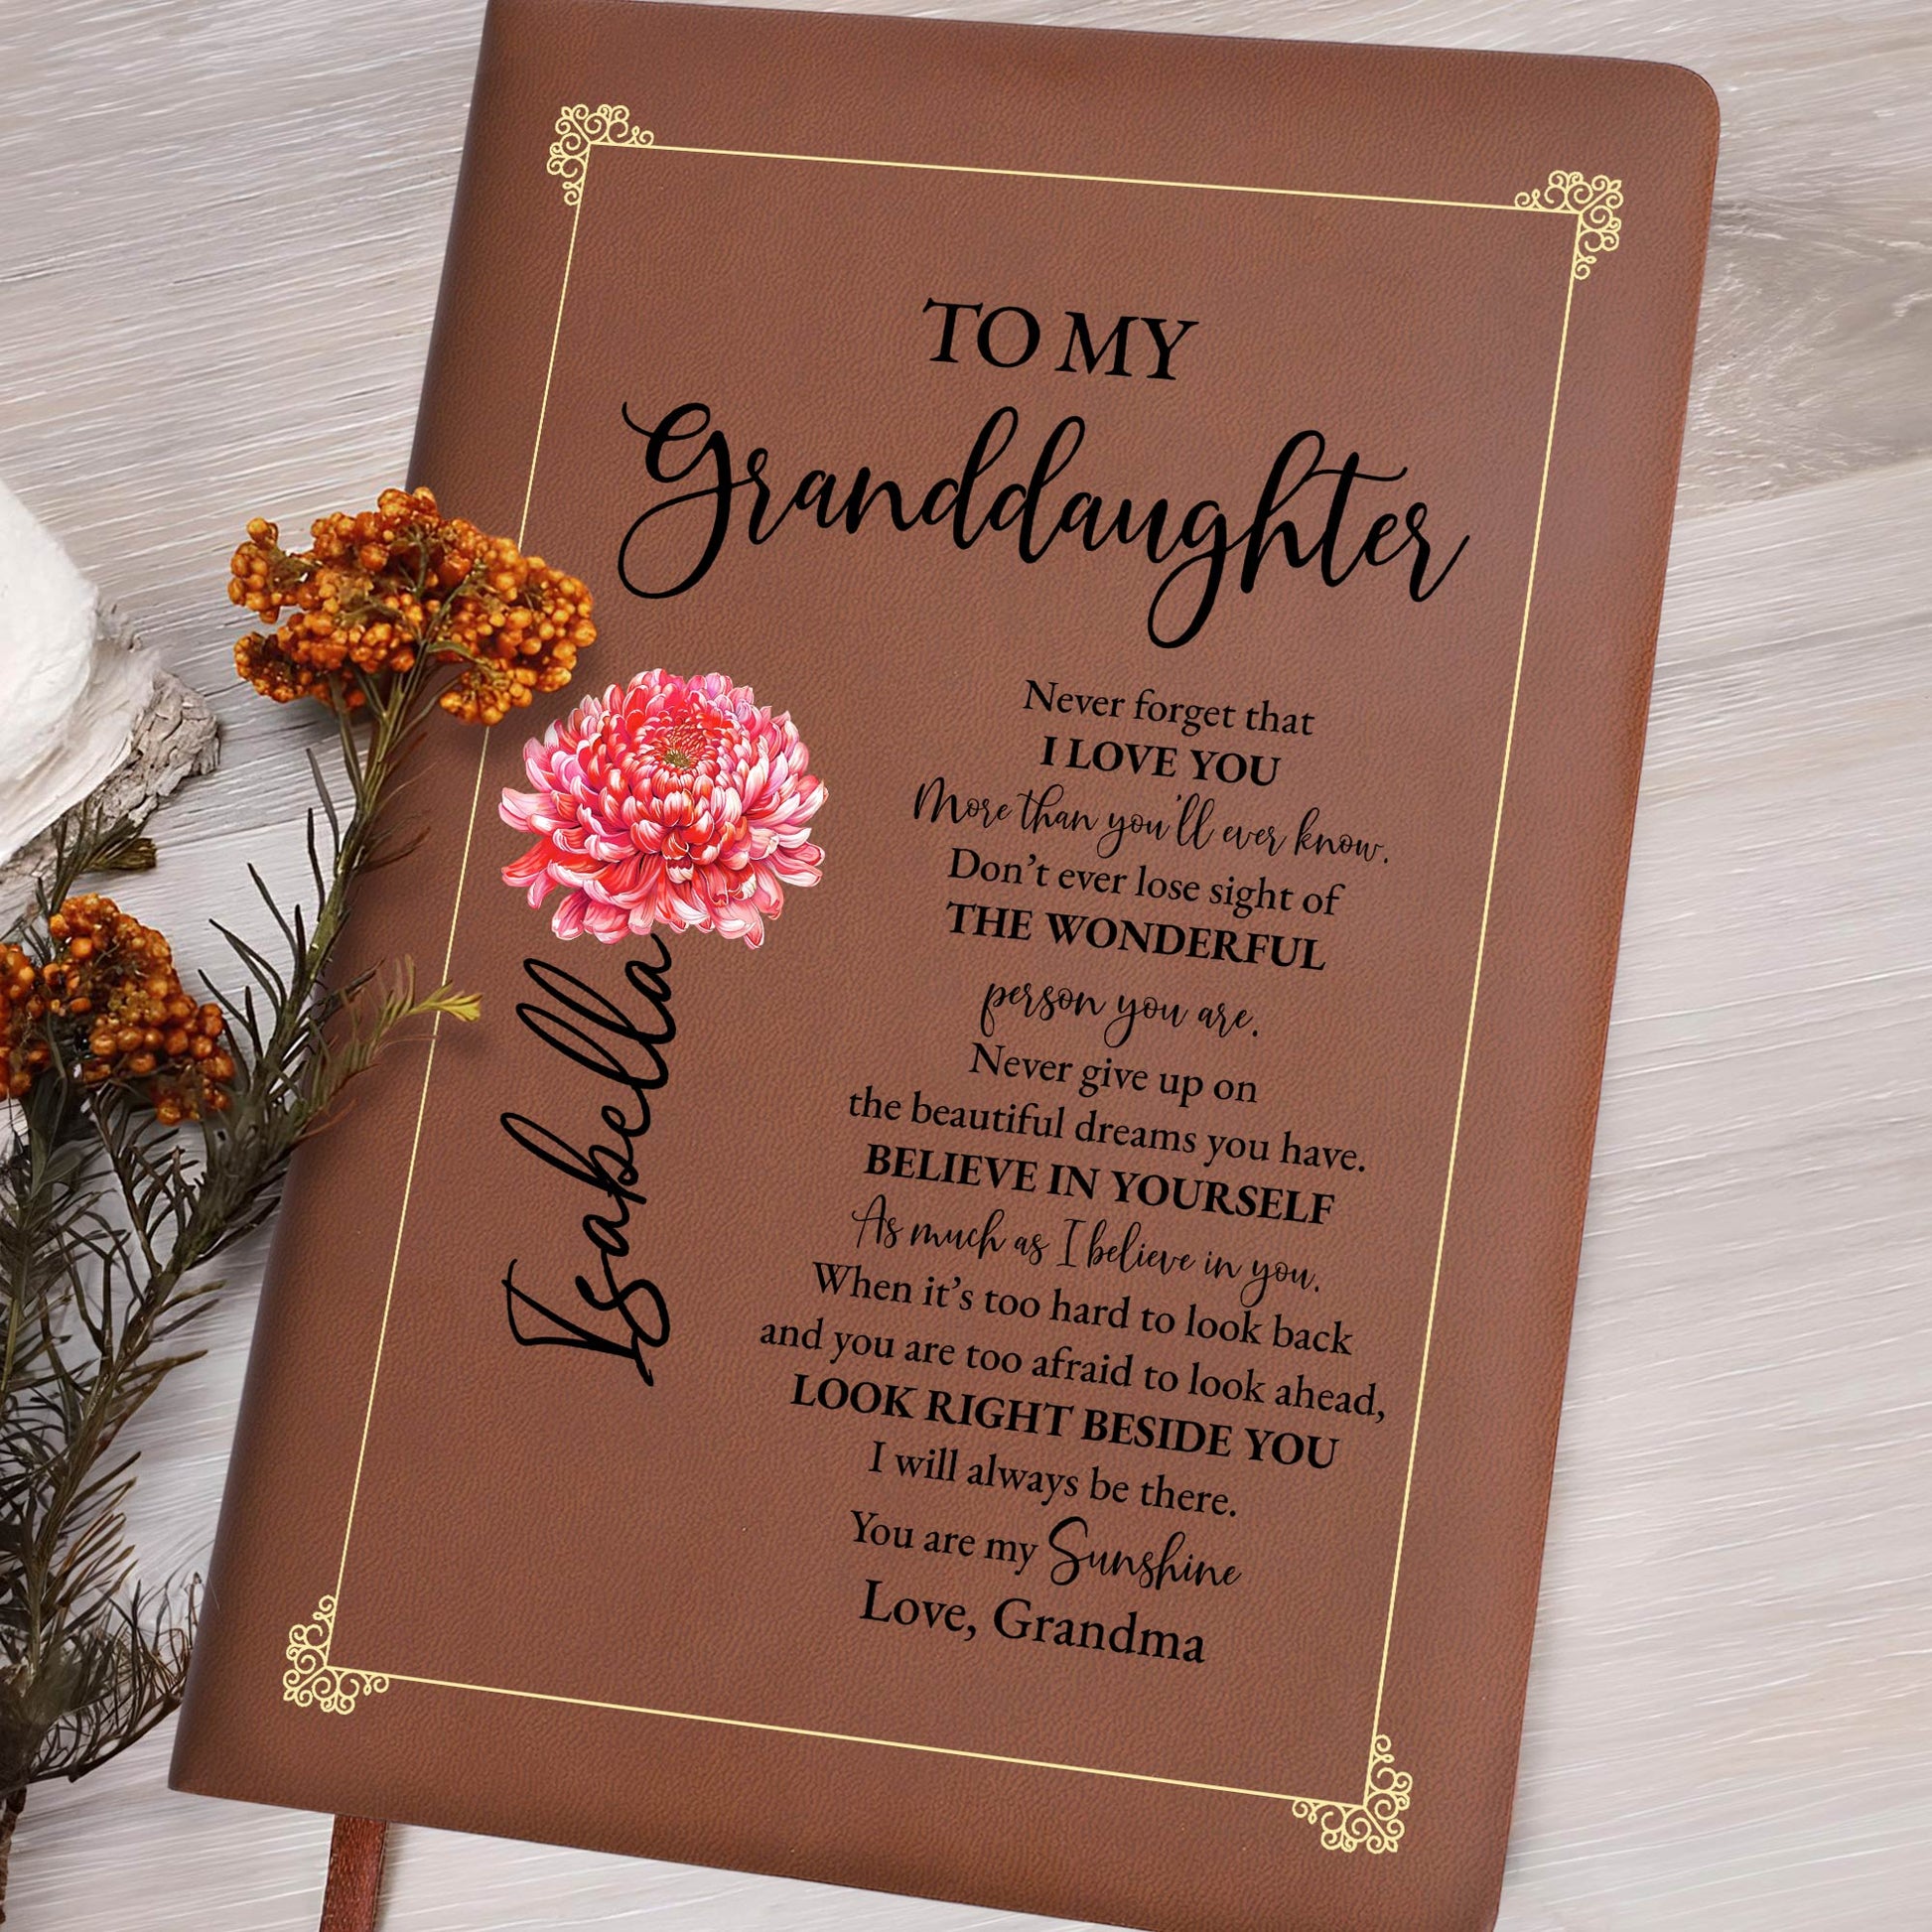 TO MY
Granddaughter
Never forget that
I LOVE YOU
More than you'll ever know.
Don't ever lose sight of
THE WONDERFUL
person you are.
Never give up on
the beautiful dreams you have.
BELIEVE IN YOURSELF
As much as I believe in you.
When it's too hard to look back
and you are too afraid to look ahead,
LOOK RIGHT BESIDE YOU
I will always be there.
You are my Sunshine
Love, Grandma
Isabella